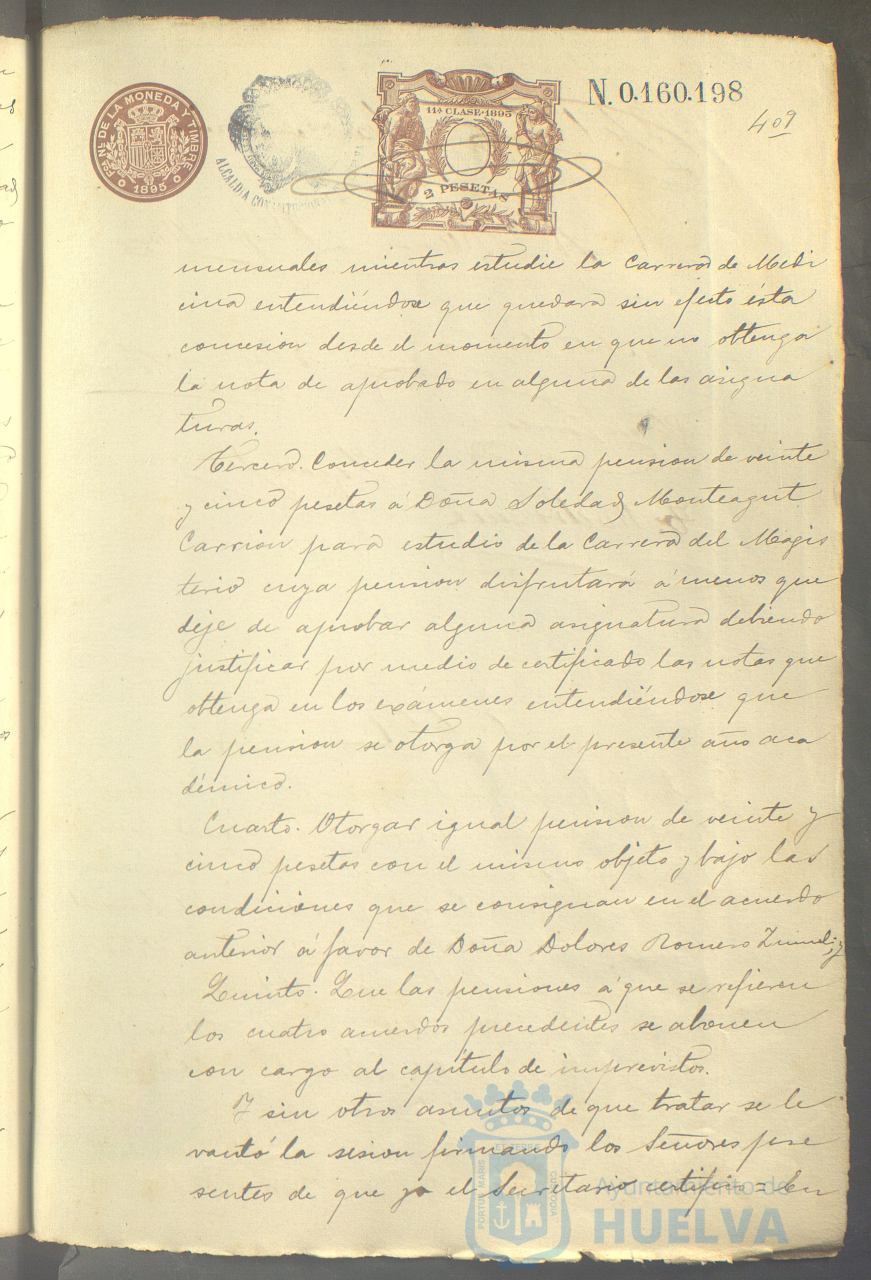 N. 0.160.198
409
FÁB. NL. DE LA MONEDA Y TIMBRE
1895
ALCALDÍA CONSTITUCIONAL
11ª CLASE-1895
2 PESETAS
mensuales mientras estudie la Carrera de Medi
cina entendiéndose que quedará sin efecto ésta
concesion desde el momento en que no obtenga
la nota de aprobado en alguna de las asigna
turas.
Tercero. Conceder la misma pension de veinte
y cinco pesetas á Doña Soledad Monteagut
Carrion para estudio de la Carrera del Magis
terio cuya pension disfrutará á menos que
deje de aprobar alguna asignatura debiendo
justificar por medio de certificado las notas que
obtenga en los exámenes entendiéndose que
la pension se otorga por el presente año aca
démico.
Cuarto. Otorgar igual pension de veinte y
cinco pesetas con el mismo objeto y bajo las
condiciones que se consignan en el acuerdo
anterior á favor de Doña Dolores Romero
Quinto. Que las pensiones á que se refieren
los cuatro acuerdos precedentes se abonen
con cargo al capítulo de imprevistos.
Y sin otros asuntos de que tratar se le
vantó la sesion firmando los Señores pre
sentes de que yo el Secretario certifico = En
PORTUS MARIS ET TERRE CUSTODIA
Ayuntamiento de
HUELVA